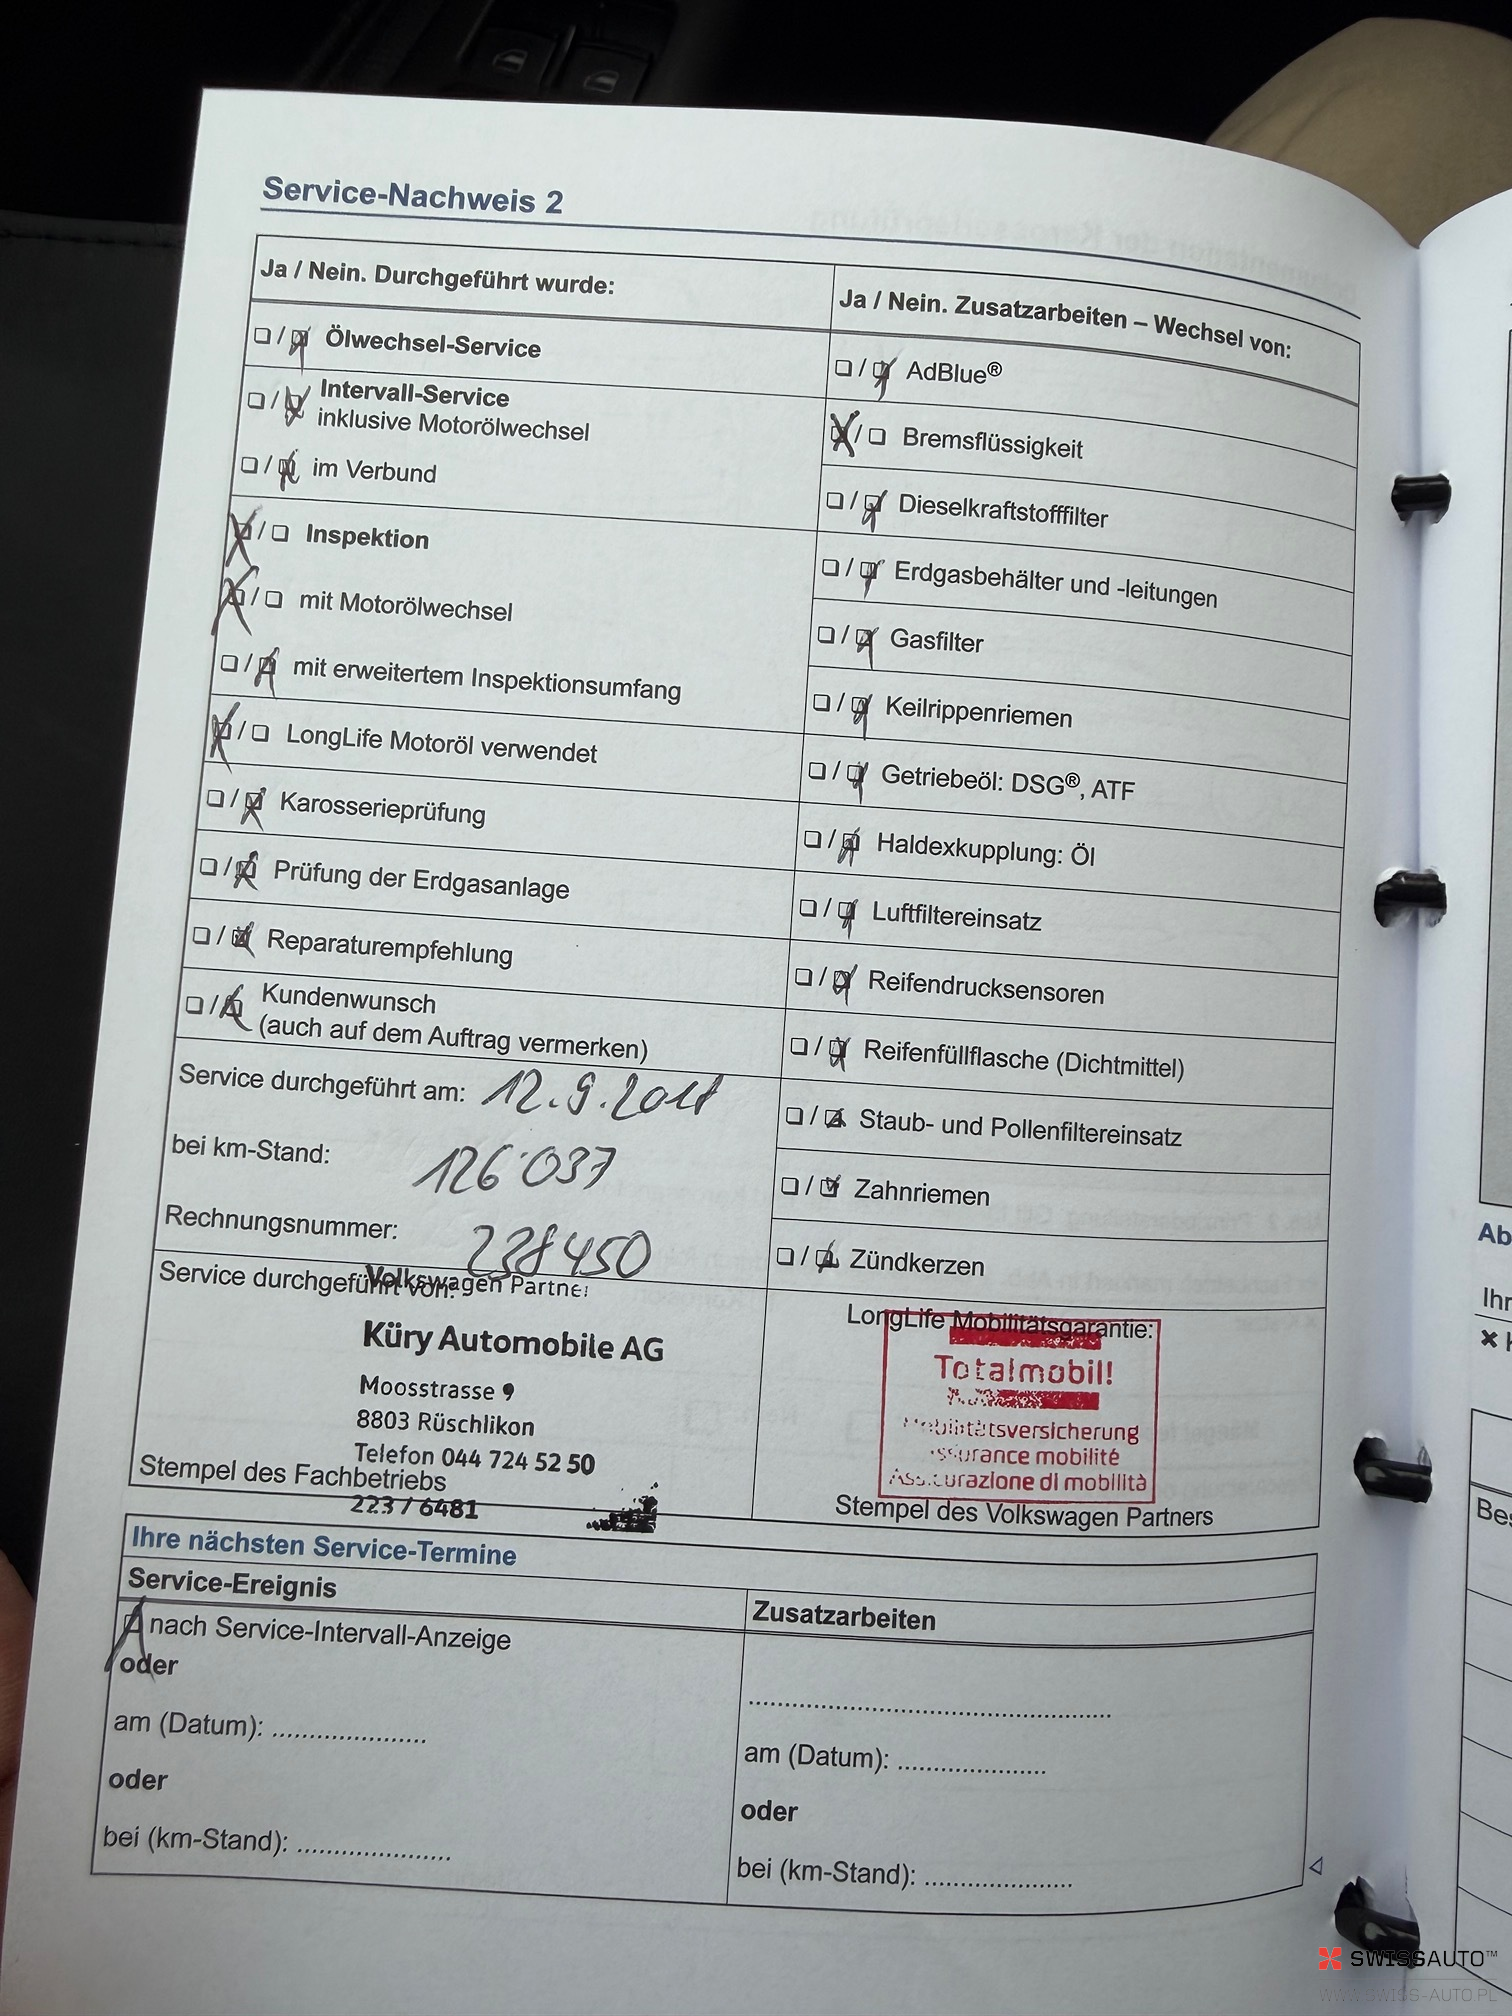 Service-Nachweis 2
Ja / Nein. Durchgeführt wurde:
❏ / ❏ Ölwechsel-Service
❏ / ❏ Intervall-Service
inklusive Motorölwechsel
❏ / ❏ im Verbund
❏ / ❏ Inspektion
❏ / ❏ mit Motorölwechsel
❏ / ❏ mit erweitertem Inspektionsumfang
❏ / ❏ LongLife Motoröl verwendet
❏ / ❏ Karosserieprüfung
❏ / ❏ Prüfung der Erdgasanlage
❏ / ❏ Reparaturempfehlung
❏ / ❏ Kundenwunsch
(auch auf dem Auftrag vermerken)
Service durchgeführt am: 12.9.2018
bei km-Stand: 126'037
Rechnungsnummer: 238450
Service durchgeführt von:
Volkswagen Partner
Küry Automobile AG
Moosstrasse 9
8803 Rüschlikon
Telefon 044 724 52 50
Stempel des Fachbetriebs
223 / 6481
Ja / Nein. Zusatzarbeiten – Wechsel von:
❏ / ❏ AdBlue®
❏ / ❏ Bremsflüssigkeit
❏ / ❏ Dieselkraftstofffilter
❏ / ❏ Erdgasbehälter und -leitungen
❏ / ❏ Gasfilter
❏ / ❏ Keilrippenriemen
❏ / ❏ Getriebeöl: DSG®, ATF
❏ / ❏ Haldexkupplung: Öl
❏ / ❏ Luftfiltereinsatz
❏ / ❏ Reifendrucksensoren
❏ / ❏ Reifenfüllflasche (Dichtmittel)
❏ / ❏ Staub- und Pollenfiltereinsatz
❏ / ❏ Zahnriemen
❏ / ❏ Zündkerzen
LongLife Mobilitätsgarantie:
Totalmobil!
Mobilitätsversicherung
Assurance mobilité
Assicurazione di mobilità
Stempel des Volkswagen Partners
Ihre nächsten Service-Termine
Service-Ereignis
❏ nach Service-Intervall-Anzeige
oder
am (Datum): ......................
oder
bei (km-Stand): ......................
Zusatzarbeiten
....................................................
am (Datum): ......................
oder
bei (km-Stand): ......................
Ab
Ihr
Bes
SWISSAUTO™
WWW.SWISS-AUTO.PL